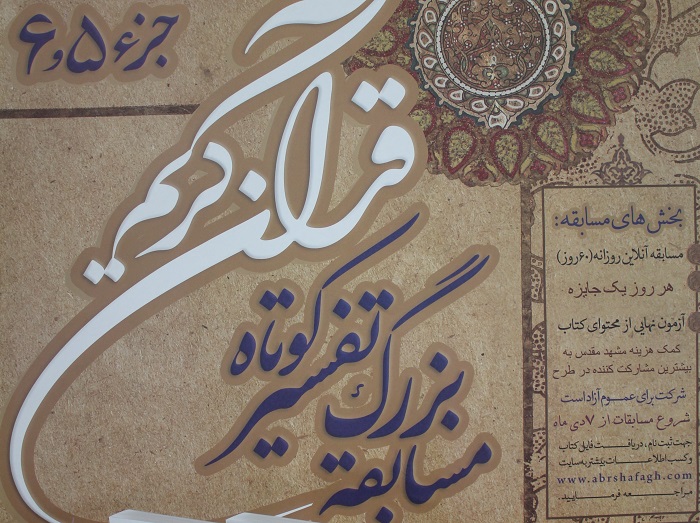 جزء ۵و۶
قرآن کریم
مسابقه بزرگ تفسیر کوتاه
بخش های مسابقه:
مسابقه آنلاین روزانه (۶۰روز)
هر روز یک جایزه
آزمون نهایی از محتوای کتاب
کمک هزینه مشهد مقدس به
بیشترین مشارکت کننده در طرح
شرکت برای عموم آزاد است
شروع مسابقات از ۷ دی ماه
جهت ثبت نام ، دریافت فایل کتاب
و کسب اطلاعات بیشتر به سایت
www.abrshafagh.com
مراجعه فرمایید.